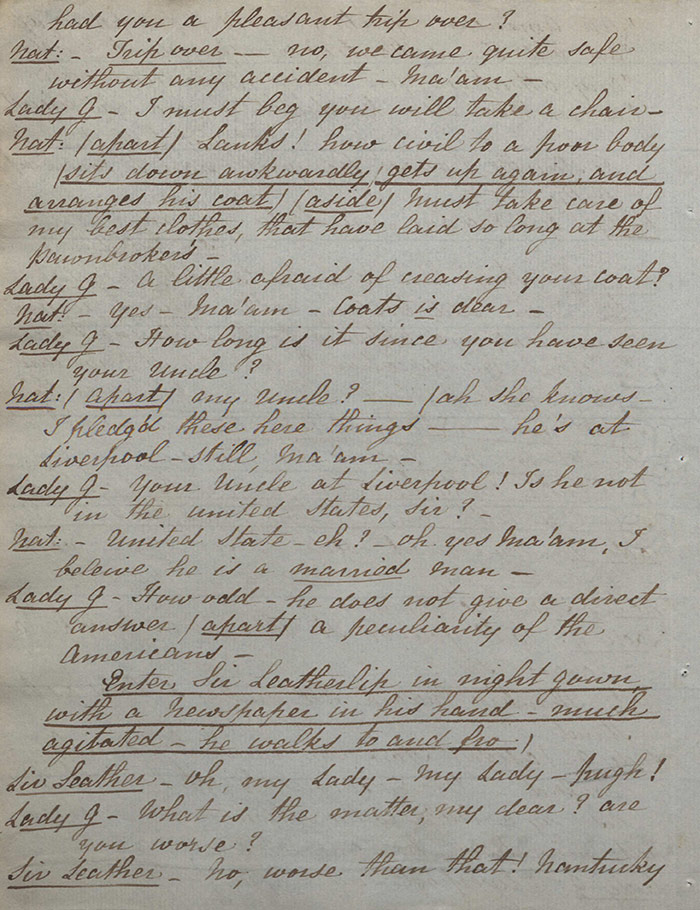 had you a pleasant trip over?
Nat: - Trip over — no, we came quite safe
without any accident - Ma'am -
Lady G - I must beg you will take a chair -
Nat: (apart) Lanks! how civil to a poor body
(sits down awkwardly, gets up again, and
arranges his coat) (aside) Must take care of
my best clothes, that have laid so long at the
Pawnbroker's -
Lady G - A little afraid of creasing your coat?
Nat: - Yes - Ma'am - Coats is dear -
Lady G - How long is it since you have seen
your Uncle?
Nat: (apart) my Uncle? — (ah she knows -
I pledg'd these here things — he's at
Liverpool - still, Ma'am -
Lady G - Your Uncle at Liverpool! Is he not
in the united States, Sir? -
Nat: - United State - eh? - oh yes Ma'am, I
beleive he is a married man -
Lady G - How odd - he does not give a direct
answer (apart) a peculiarity of the
Americans -
Enter Sir Leatherlip in night gown
with a Newspaper in his hand - much
agitated - he walks to and fro)
Sir Leather - Oh, my Lady - My Lady - pugh!
Lady G - What is the matter, my dear? are
you worse?
Sir Leather - No, worse than that! Nantucky